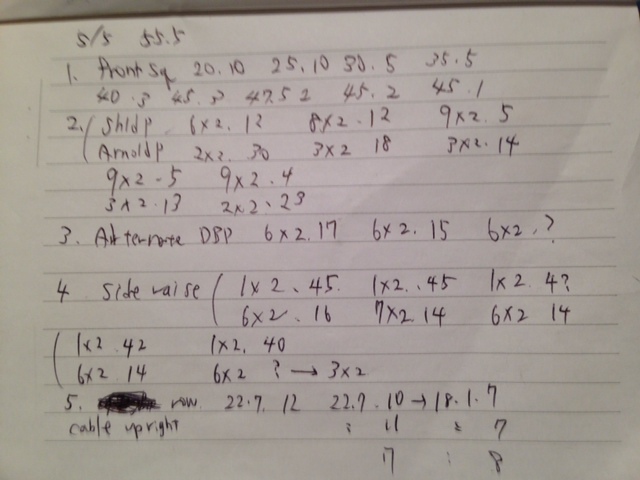 5/5 55.5
1. Front Sq 20.10 25.10 30.5 35.5
40.3 45.3 47.5 2 45.2 45.1
2. Shldp 6x2.12 8x2.12 9x2.5
Arnoldp 2x2.30 3x2 18 3x2.14
9x2-5 9x2.4
3x2.13 2x2.23
3. Alternate DBP 6x2.17 6x2.15 6x2.?
4 Side raise 1x2.45. 1x2.45 1x2.4?
6x2.16 7x2.14 6x2 14
1x2.42 1x2.40
6x2 14 6x2 ? → 3x2
5. row. 22.7.12 22.7.10 → 18.1.7
cable upright : 11 : 7
: 8